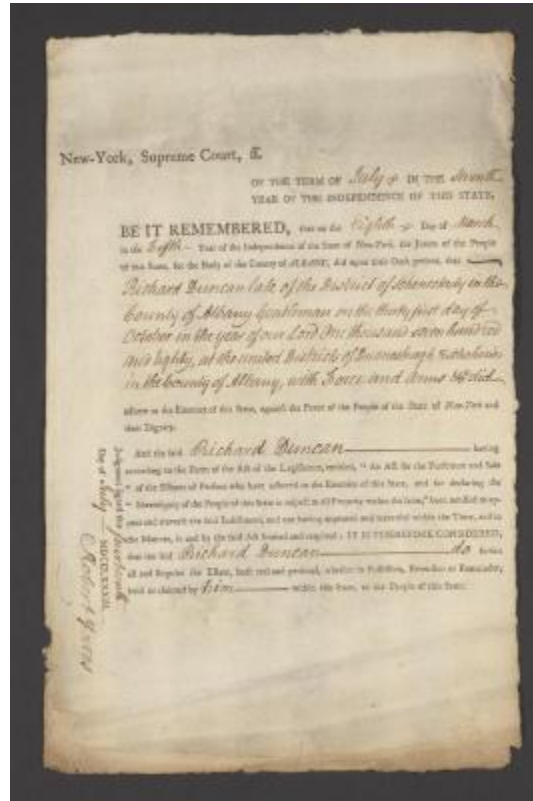 New-York, Supreme Court, ss.
OF THE TERM OF July IN THE Seventh
YEAR OF THE INDEPENDENCE OF THIS STATE,
BE IT REMEMBERED, that on the Eighth Day of March
in the Fifth Year of the Independence of the State of New-York, the Jurors of the People
of this State, for the Body of the County of ALBANY, did upon their Oath present, that
Richard Duncan late of the District of Schenectady in the
County of Albany Gentleman on the thirty first day of
October in the year of our Lord One thousand seven hundred
and eighty, at the united Districts of Duanesburgh
in the County of Albany, with Force and Arms &c did
adhere to the Enemies of this State, against the Peace of the People of the State of New-York and
their Dignity.
And the said Richard Duncan having
according to the Form of the Act of the Legislature, entitled, "An Act for the Forfeiture and Sale
"of the Estates of Persons who have adhered to the Enemies of this State, and for declaring the
"Sovereignty of the People of this State in respect to all Property within the same," been notified to ap-
pear and traverse the said Indictment, and not having appeared and traversed within the Time, and in
the Manner, in and by the said Act limited and required: IT IS THEREFORE CONSIDERED,
that the said Richard Duncan do forfeit
all and singular the Estate, both real and personal, whether in Possession, Reversion or Remainder,
held or claimed by him within this State, to the People of this State.
Judgment signed the
Day of July MDCCLXXXIII.
Robert Yates